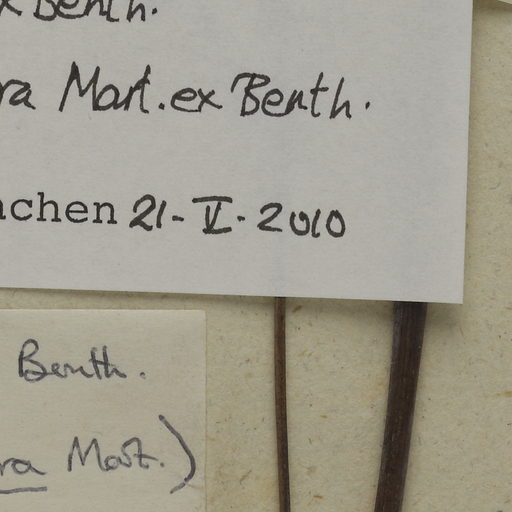 x Benth.
ra Mart. ex Benth.
chen 21-V-2010
Benth.
ra Mart.)